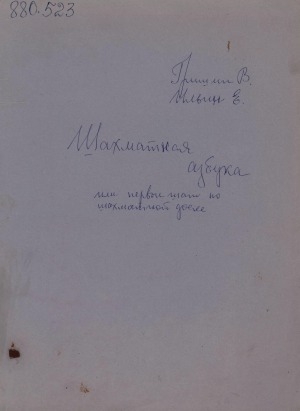 880.523
Гришин В.
Ильин Е.
Шахматная
азбука
или первые шаги по
шахматной доске